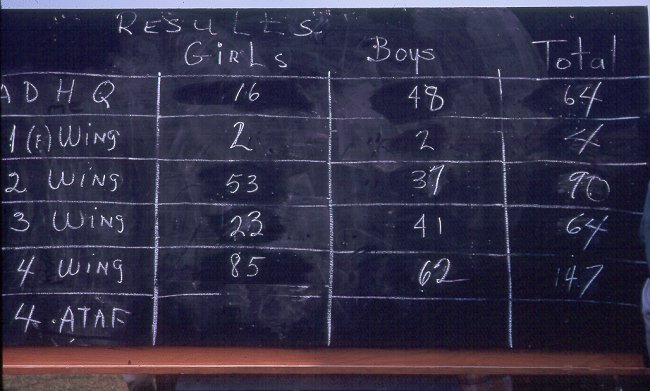 RESULTS
Girls Boys Total
A D H Q 16 48 64
1 (F) Wing 2 2 4
2 Wing 53 37 90
3 Wing 23 41 64
4 Wing 85 62 147
4 . ATAF